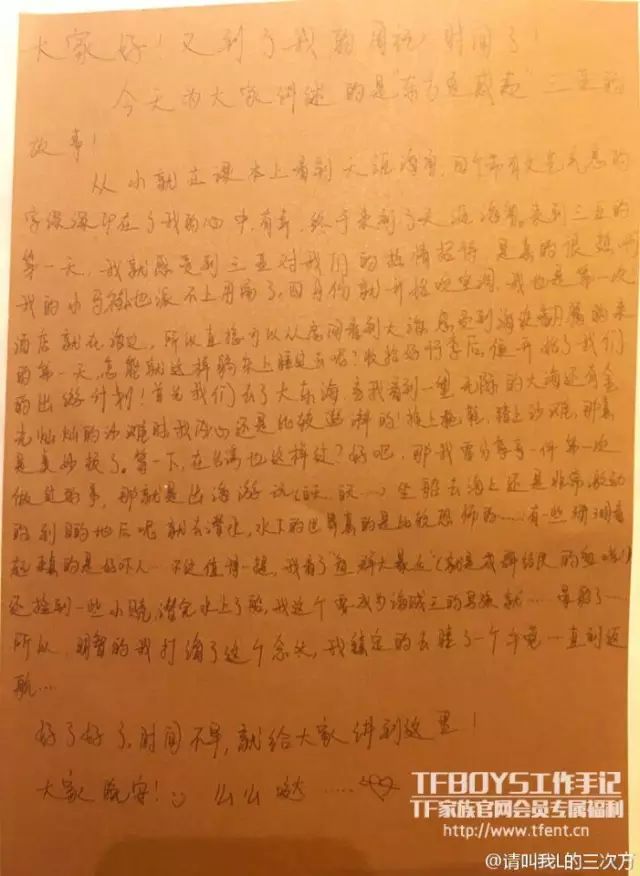 大家好!又到了我的周记时间了!
今天为大家讲述的是"东方夏威夷"三亚的
故事!
从小就在课本上看到天涯海角,四个带有文艺气息的
字深深印在了我的心中,有幸,终于来到了天涯海角。来到三亚的
第一天,我就感受到三亚对我们的热情招待,是真的很热啊
我的小马褂也派不上用场了,四月份就开始吹空调,我也是第一次
酒店就在海边,所以直接可以从房间看到大海,感受到海浪 来
的第一天,怎能就这样躺床上睡过去呢?收拾好行李后,便开始了我们
的出游计划!首先我们去了大东海,当我看到一望无际的大海还有金
光灿灿的沙滩时我内心还是比较激动的!换上拖鞋,踏上沙滩,那真
是美妙极了。等一下,在 也这样过?好吧,那我要分享享一件第一次
做过的事,那就是出海游玩 坐船去海上还是非常激动
的到目的地后呢就去潜水,水下的世界真的是比较恐怖的……有些珊瑚看
起来真的是好吓人…不过值得一提,我看了"鱼群大暴走"(就是成群结队的鱼啦!)
还捡到一些小贝壳,潜完水上了船,我这个要成为海贼王的男孩就……晕船了……
所以,明智的我打消了这个念头,我镇定的去睡了一个午觉…直到返
航…
好了好了,时间不早,就给大家讲到这里!
大家晚安! 么么哒……
TFBOYS工作手记
TF家族官网会员专属福利
http://www.tfent.cn
@请叫我L的三次方